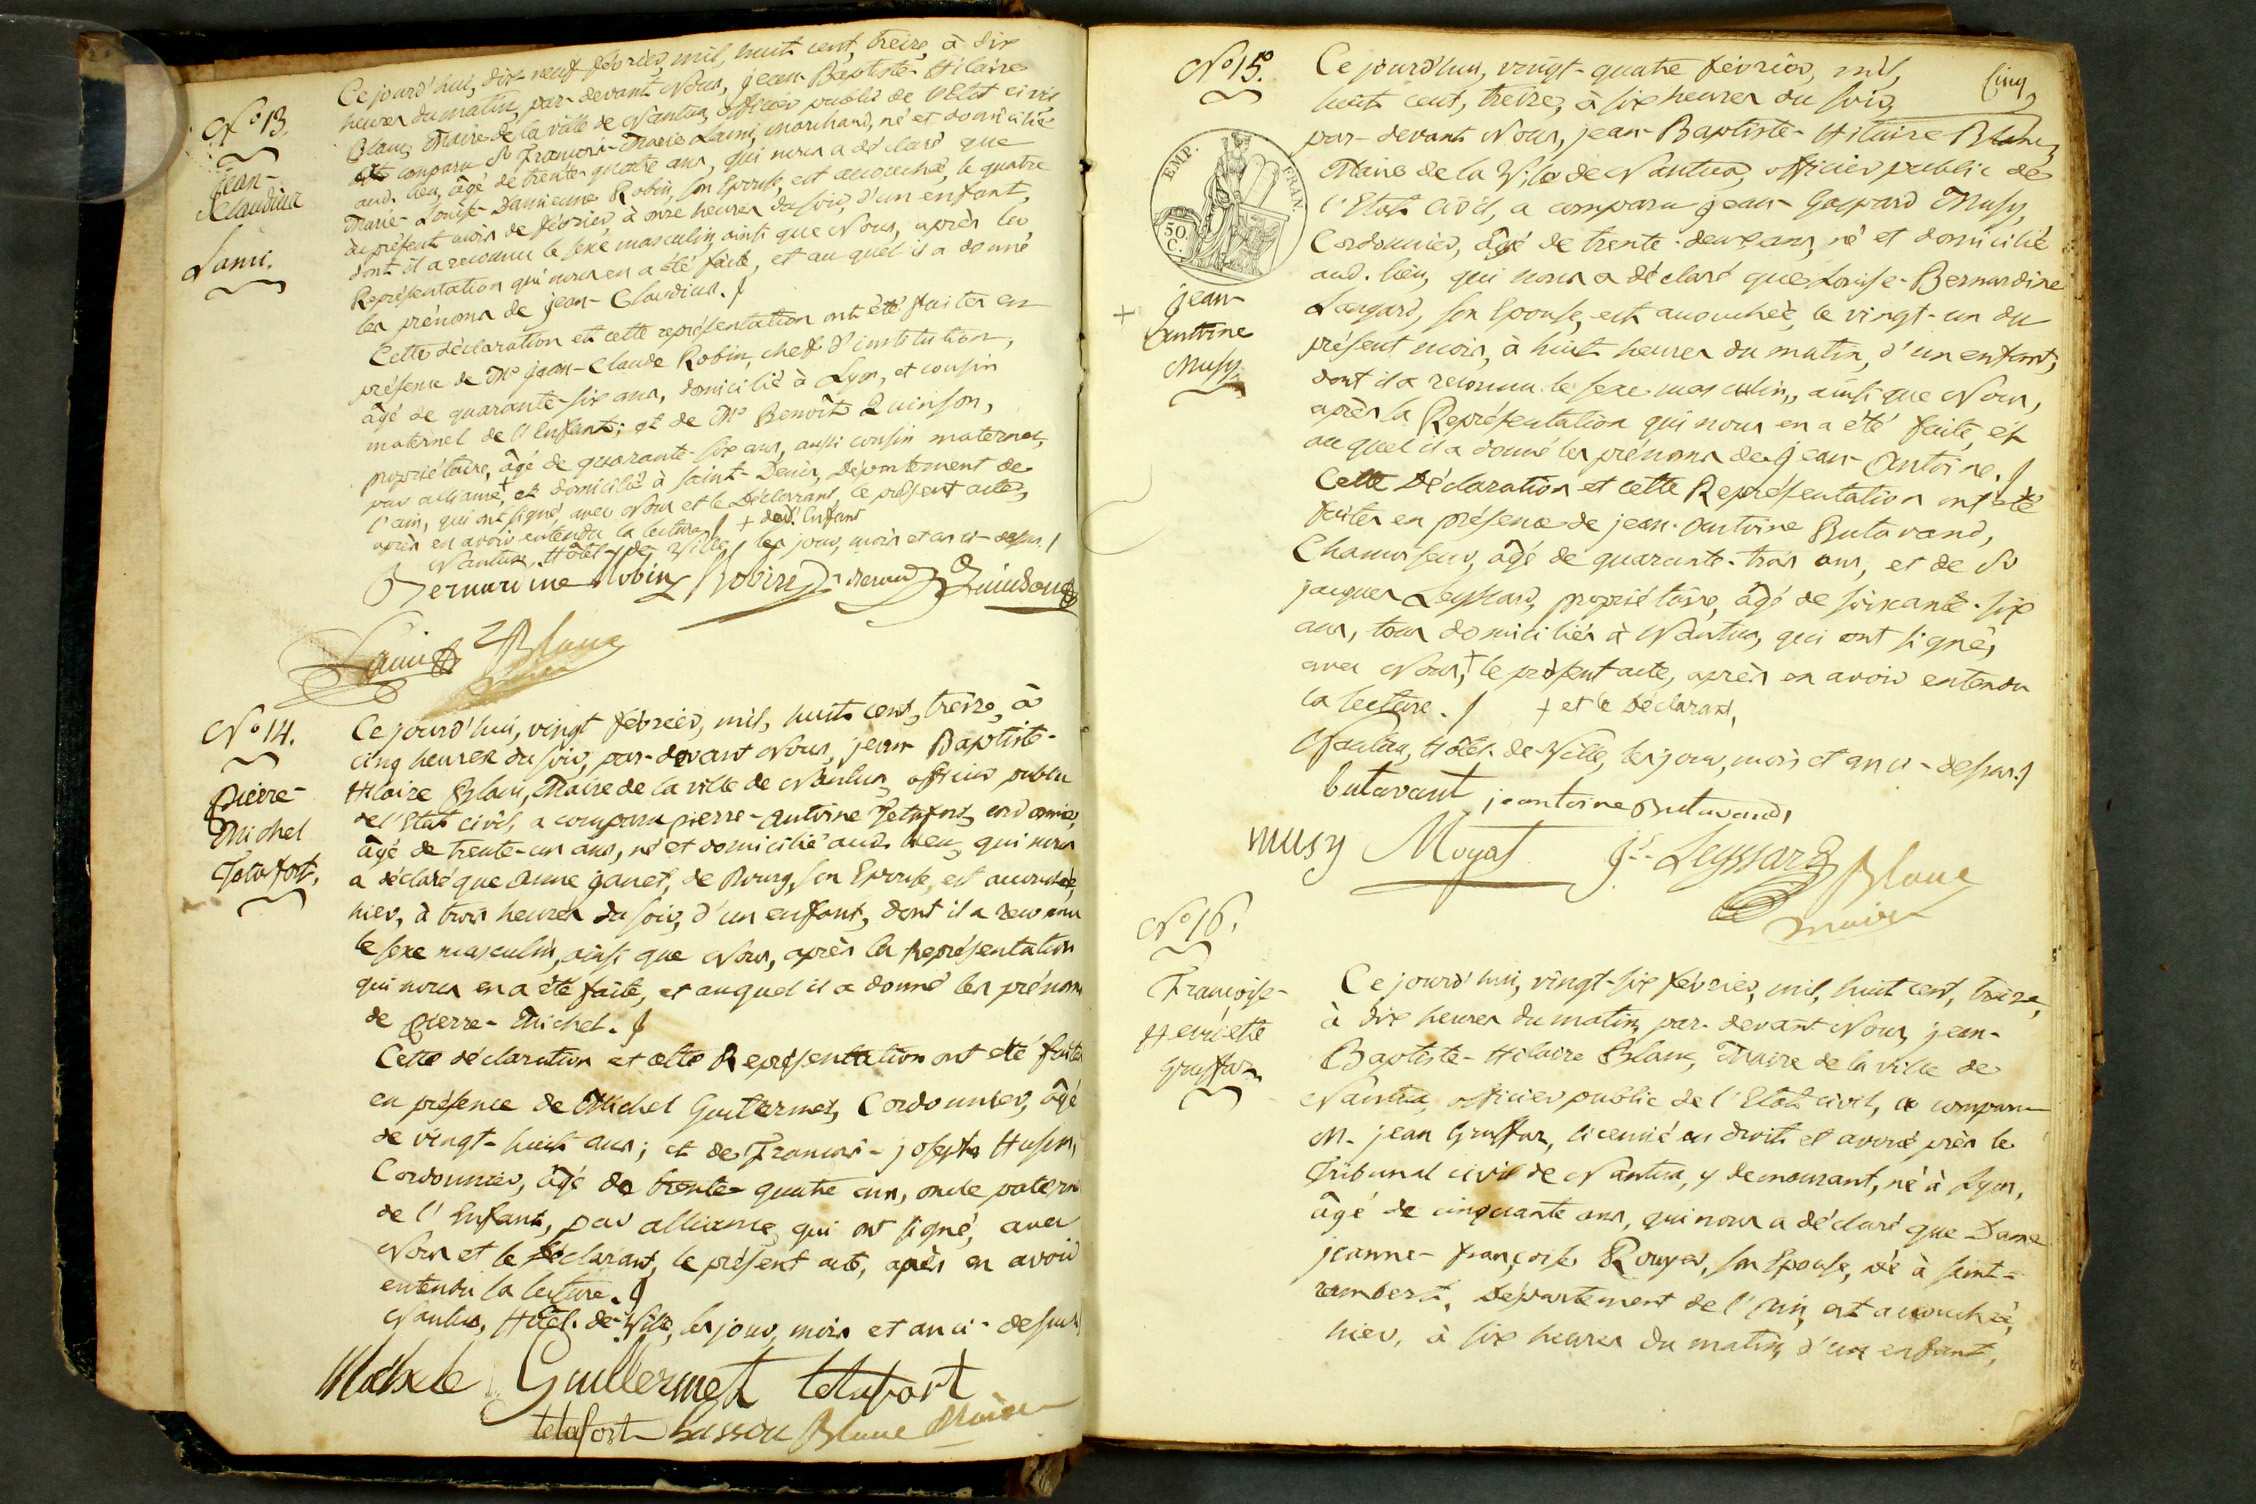 N.o 13.
Jean-
Claudius
Lami.
Ce jourd'hui, dix-neuf février, mil, huit cent, treize, à dix
heures du matin, par-devant Nous, jean-Baptiste-Hilaire
Blanc, Maire de la ville de Nantua, officier public de l'Etat civil
a comparu Sr. François-Marie Lami, marchand, né et domicilié
aud. lieu, âgé de trente-quatre ans, qui nous a déclaré que
Marie-Louise-Damienne Robin, son Epouse, est accouchée, le quatre
du présent mois de février à onze heures du soir, d'un enfant,
dont il a reconnu le sexe masculin, ainsi que Nous, après la
Représentation qui nous en a été faite, et au quel il a donné
les prénoms de jean-Claudius./
Cette déclaration et cette représentation ont été faites en
présence de Mr. jean-Claude Robin, chef d'institution,
âgé de quarante-six ans, domicilié à Lyon, et cousin
maternel de l'Enfant; et de Mr. Benoît Quinson,
propriétaire, âgé de quarante-six ans, aussi cousin maternel,
par alliance +, et domicilié à Saint-Denis, Département de
l'ain, qui ont signé, avec Nous et le Déclarant, le présent acte,
après en avoir entendu la lecture./ + dud. Enfant
Nantua, Hôtel-de-Ville, les jour, mois et an ci-dessus./
Bernardine Robin Robin Quinson
Lami Blanc
N.o 14.
pierre-
Michel
Tetafort.
Ce jourd'hui, vingt février, mil, huit cent, treize, à
cinq heures du soir, par-devant Nous, jean-Baptiste-
Hilaire Blanc, Maire de la ville de Nantua, officier public
de l'Etat civil, a comparu pierre-antoine Tetafort, cordonnier,
âgé de trente-un ans, né et domicilié aud. lieu, qui nous
a déclaré que anne ganet, de Bourg, son Epouse, est accouchée,
hier, à trois heures du soir, d'un enfant, dont il a reconnu
le sexe masculin, ainsi que Nous, après la Représentation
qui nous en a été faite, et auquel il a donné les prénoms
de pierre-Michel./
Cette déclaration et cette Représentation ont été faites
en présence de Michel Guillermet, Cordonnier, âgé
de vingt-huit ans; et de François-joseph Husson,
Cordonnier, âgé de trente-quatre ans, oncle paternel
de l'Enfant, par alliance, qui ont signé, avec
Nous et le Déclarant, le présent acte, après en avoir
entendu la lecture./
Nantua, Hôtel-de-Ville, les jour, mois et an ci-dessus./
Michele Guillermet tetafort
tetafort husson Blanc Maire
Cinq
N.o 15.
EMP. FRAN.
50
C.
jean-
Antoine
Musy.
Ce jourd'hui, vingt-quatre février, mil,
huit cent, treize, à six heures du soir,
par-devant Nous, jean-Baptiste-Hilaire Blanc,
Maire de la Ville de Nantua, officier public de
l'Etat Civil, a comparu jean-Gaspard Musy,
Cordonnier, âgé de trente-deux ans, né et domicilié
aud. lieu, qui nous a déclaré que Louise-Bernardine
Langard, son Epouse, est accouchée, le vingt-un du
présent mois, à huit heures du matin, d'un enfant,
dont il a reconnu le sexe masculin, ainsi que Nous,
après la Représentation qui nous en a été faite, et
au quel il a donné les prénoms de jean-Antoine./
Cette Déclaration et cette Représentation ont été
faites en présence de jean-Antoine Butavand,
Chamoiseur, âgé de quarante-trois ans, et de Sr.
jacques Leyssard, propriétaire, âgé de soixante-six
ans, tous domiciliés à Nantua, qui ont signé,
avec Nous +, le présent acte, après en avoir entendu
la lecture./ + et le Déclarant,
Nantua, Hôtel-de-Ville, les jour, mois et an ci-dessus./
butavant jeantoine Butavand
musy Moyat Js. Leyssard Blanc
maire
N.o 16.
Françoise-
Henriette
Gruffaz
Ce jourd'hui, vingt-six février, mil, huit cent, treize,
à dix heures du matin, par-devant Nous, jean-
Baptiste-Hilaire Blanc, Maire de la ville de
Nantua, officier public de l'Etat civil, a comparu
M. jean Gruffaz, licencié en droit et avoué près le
Tribunal civil de Nantua, y demeurant, né à Lyon,
âgé de cinquante ans, qui nous a déclaré que Dame
jeanne-françoise Rouyer, son Epouse, née à saint-
rambert, Département de l'Ain, est accouchée,
hier, à six heures du matin, d'un enfant,